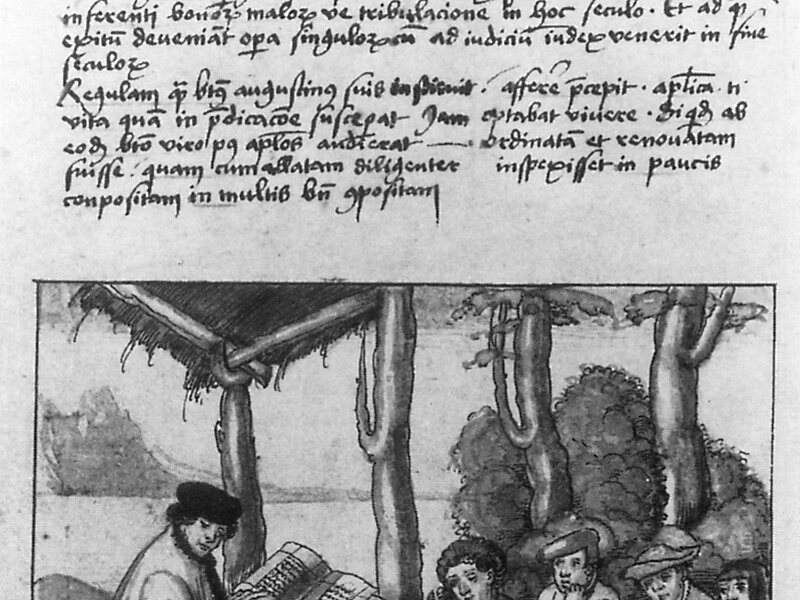 inferenti bonoꝝ maloꝝ ve tribulacione in hoc seculo · Et ad
exitū deveniāt opa singuloꝝ cū ad iudiciū iudex venerit in fine
seculoꝝ
Regulam btꝰ augustinus suis instituit · afferre p̄cepit · aplica
vita quā in p̄dicacōe susceperat Jam optabat vivere · ab
eodē bto viro pꝰ aplos audierat — ordinatā et renovatam
fuisse · quam cum allatam diligenter inspexisset in paucis
conpositam in multis bn̄ ꝯpositam